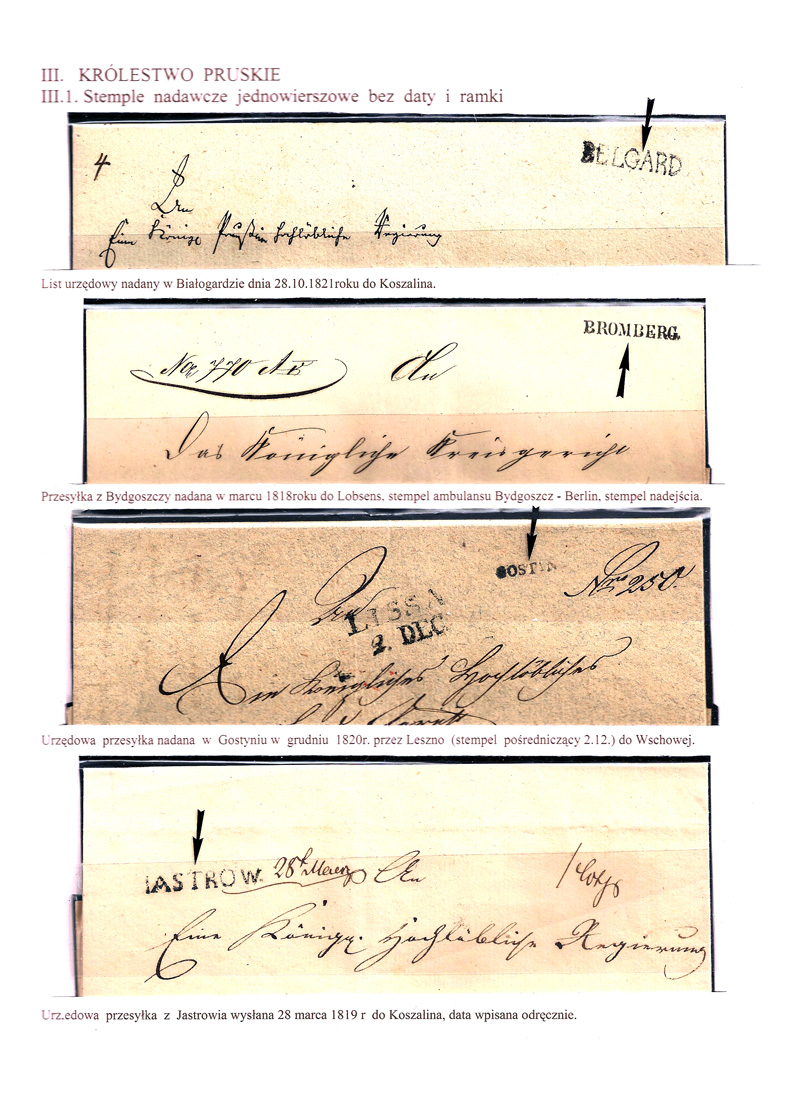 III. KRÓLESTWO PRUSKIE
III.1. Stemple nadawcze jednowierszowe bez daty i ramki
BELGARD
4
An
Eine Königl Preußin hochlöbliche Regierung
List urzędowy nadany w Białogardzie dnia 28.10.1821roku do Koszalina.
BROMBERG.
770 An
Das Königliche Kreisgericht
Przesyłka z Bydgoszczy nadana w marcu 1818roku do Lobsens, stempel ambulansu Bydgoszcz - Berlin, stempel nadejścia.
GOSTIN
Nro 250.
An
LISSA
2. DEC
Ein Königliches Hochlöbliches
Urzędowa przesyłka nadana w Gostyniu w grudniu 1820r. przez Leszno (stempel pośredniczący 2.12.) do Wschowej.
IASTROW. 28t Maerz An
Eine Königl. Hochlöbliche Regierung
Urz.edowa przesyłka z Jastrowia wysłana 28 marca 1819 r do Koszalina, data wpisana odręcznie.